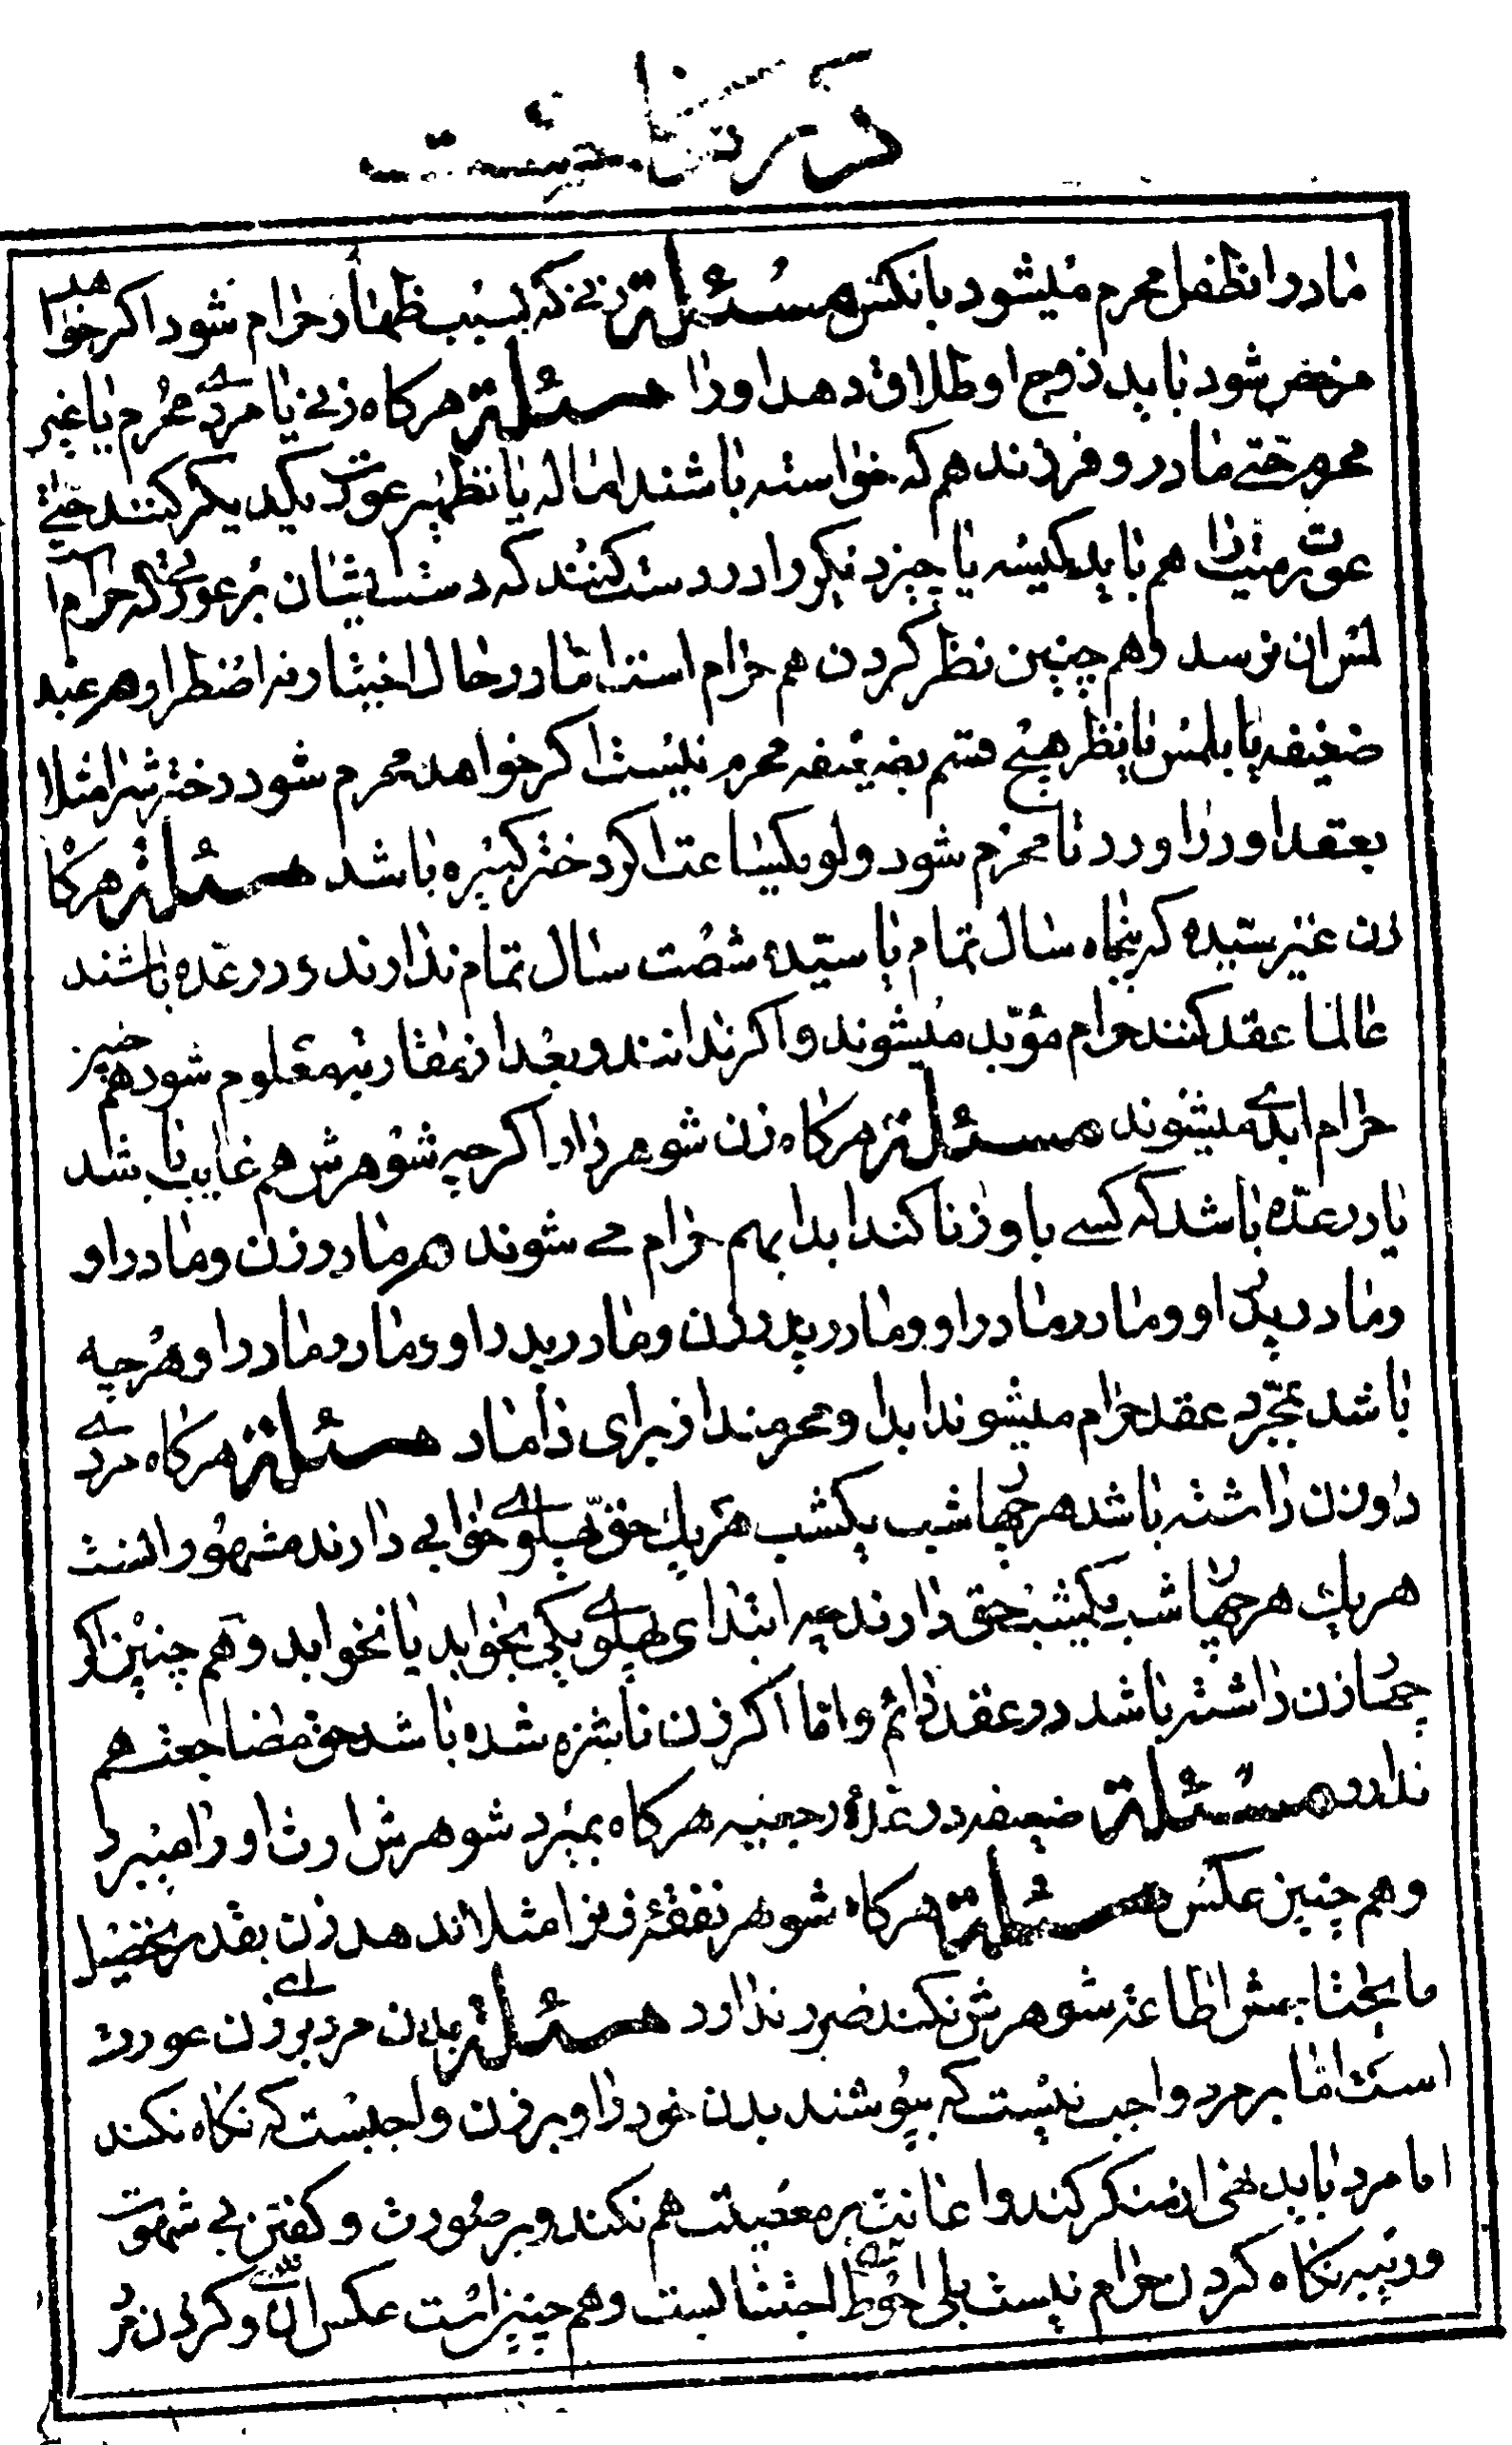 در تناکحست
مادر انطفل محرم میشود بانکس مسئلة زنی که بسبب ظهار حرام شود اکر خواهد
مرخص شود باید زوج او طلاق دهد او را مسئلة هرکاه زنی یا مردی محرم یا غیر
محرم حتی مادر و فرزند هم که خواسته باشند اماله یا تطهیر عورت یکدیکر کنند حتی
عورت میت را هم باید کیسه یا چیز دیکر را در دست کنند که دستشان بر عورتی که حرام است
لمس ان نرسد و هم چنین نظر کردن هم حرام است اما در حال اختیار نه اضطرار و هر عبد
ضعیفه یا بلمس یا بنظر هیچ قسم بضعیفه محرم نیست اکر خواهد محرم شود دخترش را مثلا
بعقد او دراورد تا محرم شود ولو یکساعت اکر دختر کبیره باشد مسئلة هرکاه
زن غیر سیده که پنجاه سال تمام یا سیده شصت سال تمام ندارند و در عده باشند
عالما عقد کنند حرام مؤبد میشوند و اکر ندانند و بعد از مقاربة معلوم شود هم چنین
حرام ابدی میشوند مسئلة هرکاه زن شوهر دار اکرچه شوهرش هم غایب باشد
یا در عده باشد که کسی با او زنا کند ابدا بهم حرام می شوند هر مادر زن و مادر او
و مادر پدر او و مادر مادر او و مادر پدر زن و مادر پدر او و مادر مادر او هرچه
باشد بمجرد عقد حرام میشوند ابدا و محرمند از برای داماد مسئلة هرکاه مردی
دو زن داشته باشد هر چهار شب یکشب هر یک حق پهلوی خوابی دارند مشهور است
هر یک هر چهار شب یکشب حق دارند چه ابتدای پهلوی یکی بخوابد یا نخوابد و هم چنین اکر
چهار زن داشته باشد در عقد دائم و اما اکر زن ناشزه شده باشد حق مضاجعت هم
ندارد مسئلة ضعیفه در عدهٔ رجعیه هرکاه بمیرد شوهرش ارث او را میبرد
و هم چنین عکس مسئلة هرکاه شوهر نفقهٔ زن را مثلا ندهد زن بقدر تحصیل
ما یحتاجش اطاعة شوهرش نکند ضرر ندارد مسئلة بدن مرد برای زن عورت
است اما بر مرد واجب نیست که بپوشند بدن خود را و بر زن واجبست که نکاه نکند
اما مرد باید نهی از منکر کند و اعانت بر معصیت هم نکند و بر صورت و کفتن بی شهوت
و ریبه نکاه کردن حرام نیست بلی احوط اجتنابست و هم چنین است عکس ان و کردن مرد